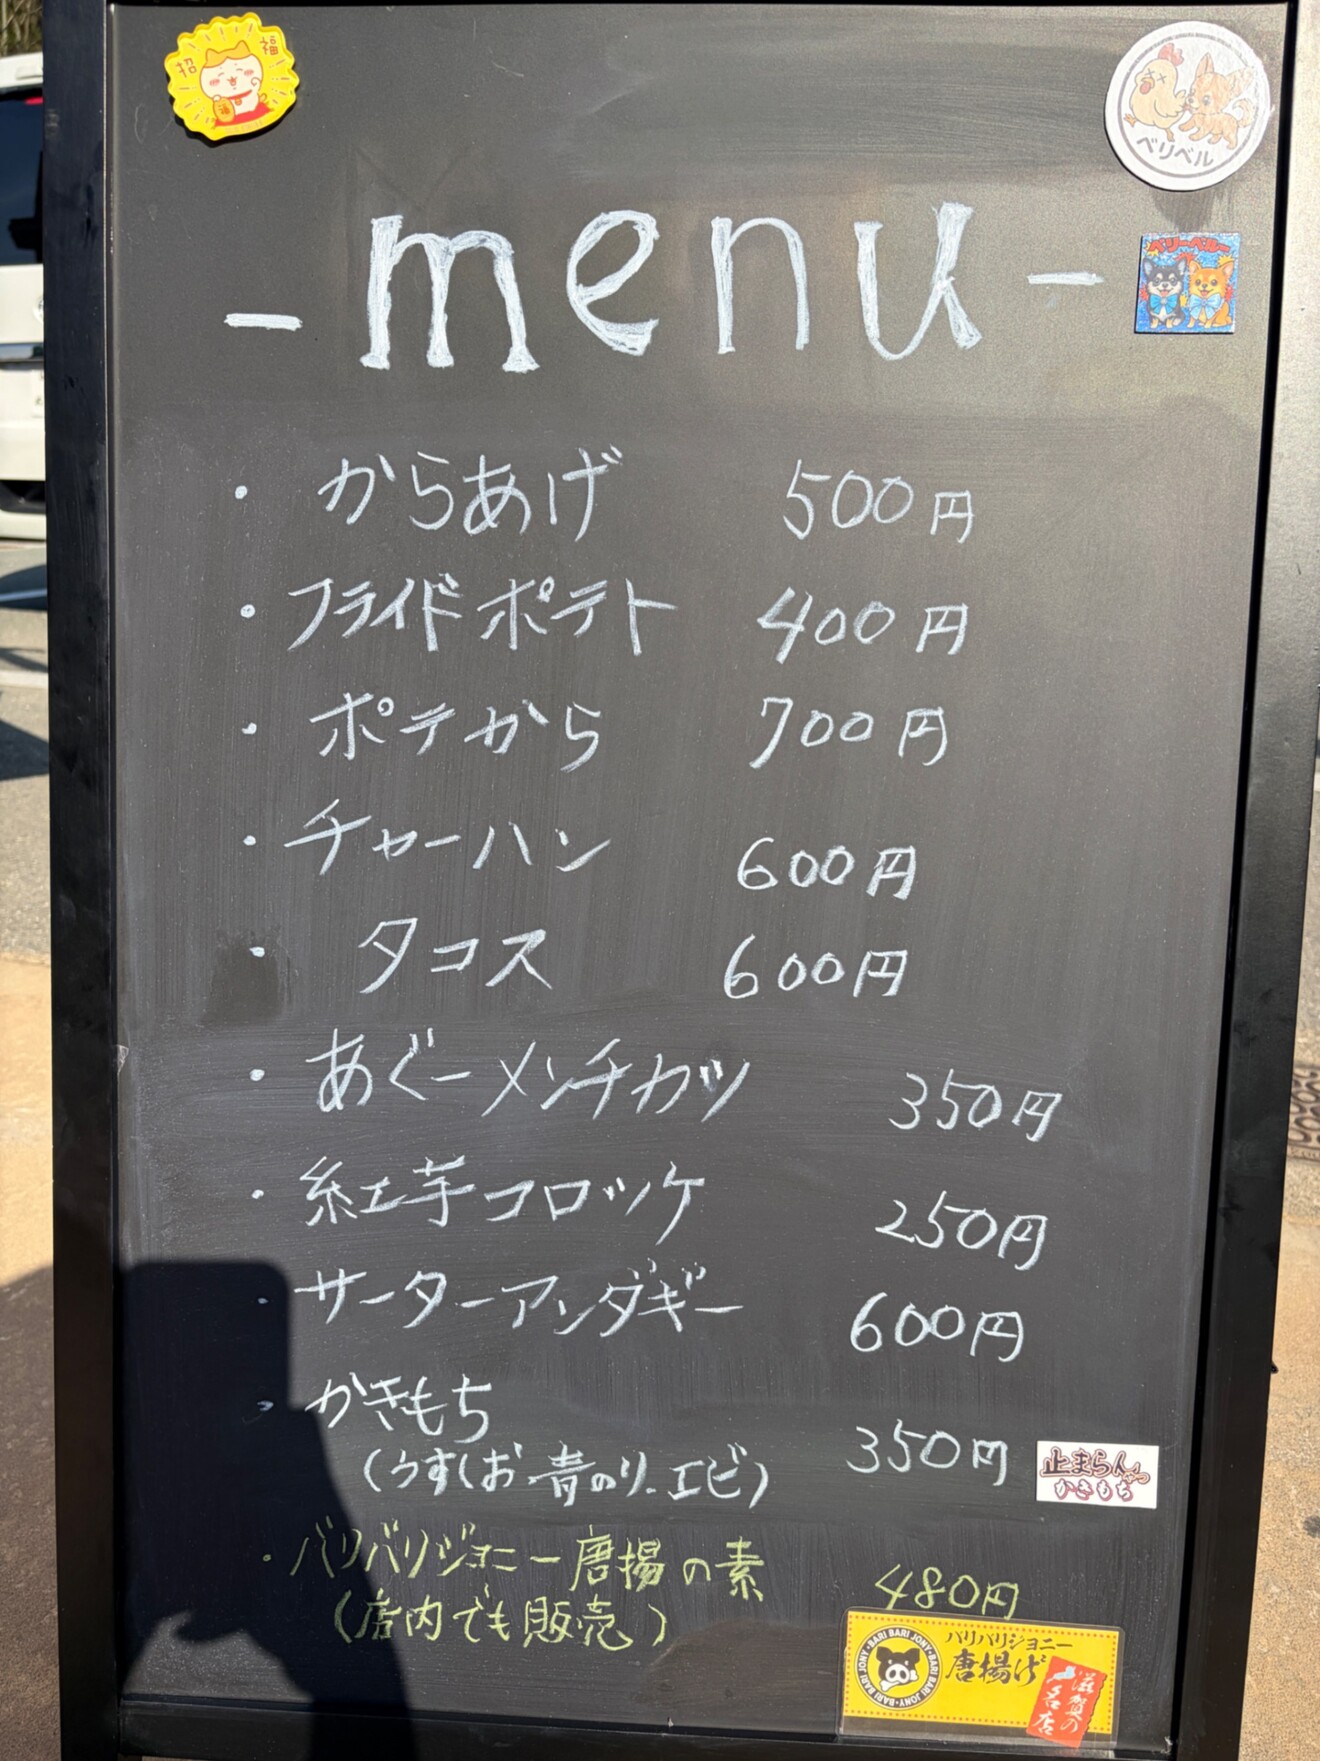 招福
ベリベル
ベリーベルー
- menu -
・からあげ 500円
・フライドポテト 400円
・ポテから 700円
・チャーハン 600円
・タコス 600円
・あぐーメンチカツ 350円
・紅芋コロッケ 250円
・サーターアンダギー 600円
・かきもち
(うすしお.青のり.エビ) 350円
止まらんやつ
かきもち
・バリバリジョニー唐揚の素
(店内でも販売) 480円
BARI BARI JONY・BARI BARI JONY・BARI BARI JONY
バリバリジョニー
唐揚げ
滋賀の
名店